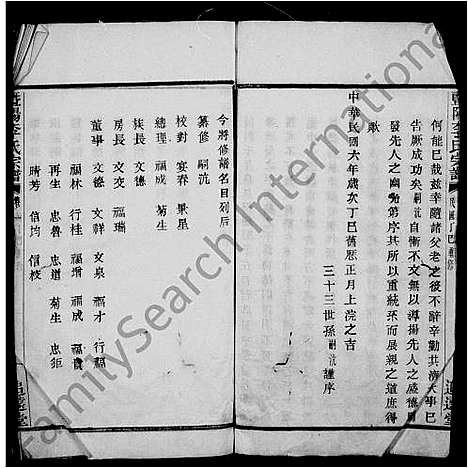 暨陽李氏宗譜
何能已哉茲幸隨諸父老之後不辭辛勤共濟大事已
告厥成功矣嗣沆自慚不文無以溥揚先人之盛德
發先人之幽光第序其所以重統系而展親之道庶得
歟
中華民國六年歲次丁巳舊曆正月上浣之吉
三十三世孫嗣沆謹序
追遠堂
今將修譜名目列后
纂修 嗣沆
校對 宴春 聚星
總理 福成 菊生
族長 文德
房長 文交 福瑞
董事 文德 文祥 文泉 福才 行福
福林 行桂 福增 福成 福貴
再生 忠魯 忠道 菊生 忠鉅
晴芳 信均 信校
暨陽李氏宗譜
追遠堂
FamilySearch International